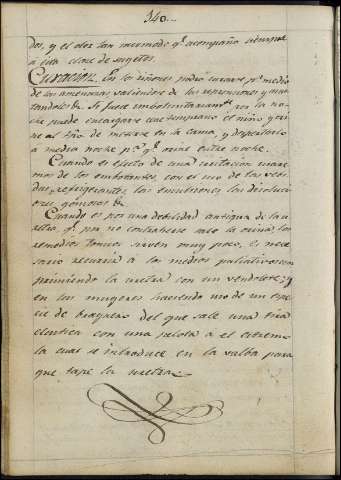 340..
dos, y el olor tan incomodo q.e acompaña siempre
a esta clase de sugetos.
Curacion. En los niños podrá curarse p.r medio
de las amenazas valiendose de las reprensiones y azo-
tandolos &. Si fuere imboluntariam.te en la no-
che puede encargarse cene temprano el niño y ori-
ne al tpo de meterse en la cama, y dispertarlo
a media noche p.a q.e orine entre noche.
Cuando es efecto de una irritacion usare-
mos de los embotantes, con el uso de las vevi-
das refrigerantes; las emulsiones las disolucio-
nes gomosas &
Cuando es por una debilidad antigua de la u-
retra, q.e p.r no contraherse sale la orina, los
remedios tonicos sirven muy poco, es nece-
sario recurrir a los medios paliativos com-
primiendo la uretra con un vendolete; y
en las mugeres haciendo uso de un espe-
cie de braguero del que sale una tira
elastica con una pelota a el estremo
la cual se introduce en la valba para
que tape la uretra